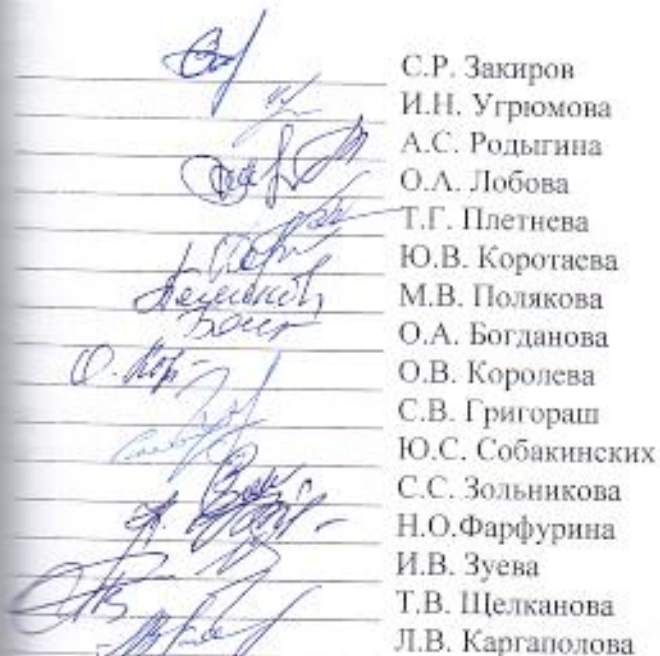 С.Р. Закиров
И.Н. Угрюмова
А.С. Родыгина
О.А. Лобова
Т.Г. Плетнева
Ю.В. Коротаева
М.В. Полякова
О.А. Богданова
О.В. Королева
С.В. Григораш
Ю.С. Собакинских
С.С. Зольникова
Н.О.Фарфурина
И.В. Зуева
Т.В. Щелканова
Л.В. Каргаполова